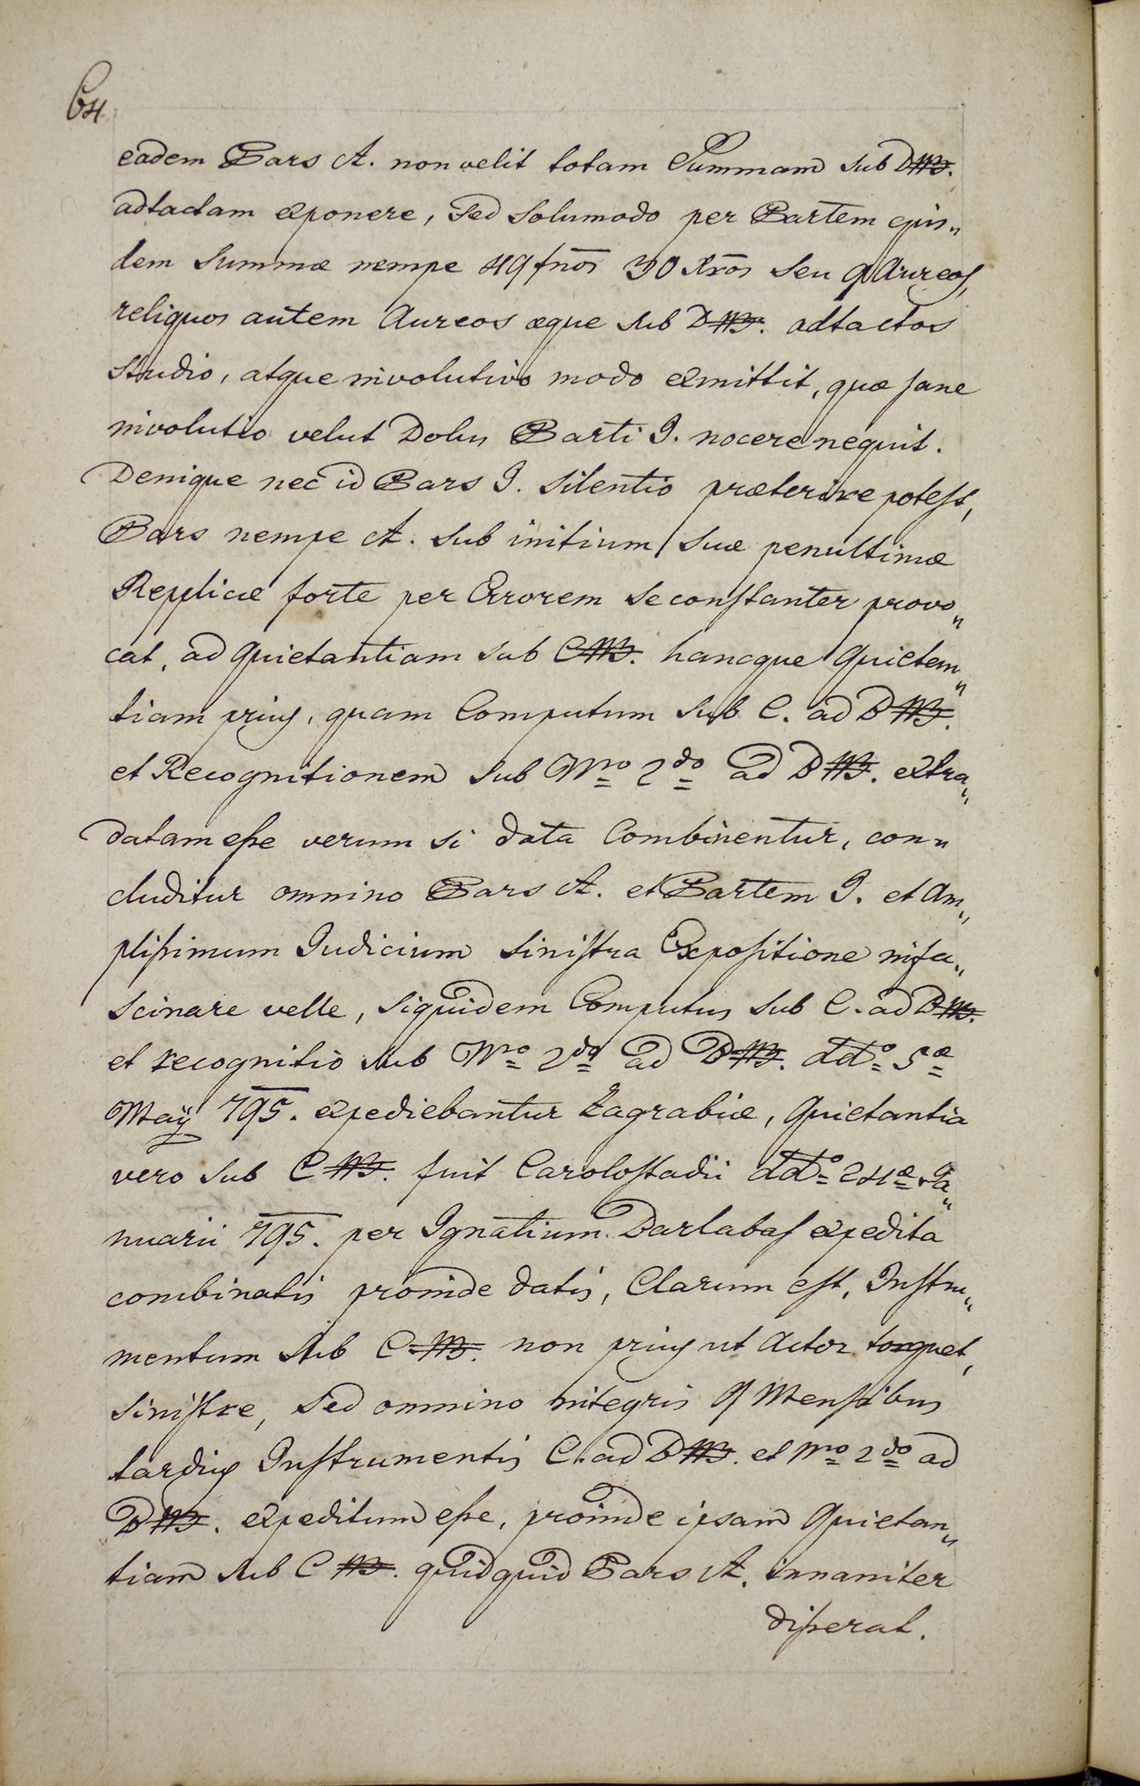 64
eadem Pars A. non velit totam Summam sub D NB.
adtactam exponere, sed solumodo per Partem ejus„
dem Summæ nempe 49 fnos 30 Xros seu 9 Aureos,
reliquos autem Aureos æque sub D NB. adtactos
studio, atque involutivo modo exmittit, quæ sane
involutio velut Dolus Parti I. nocere nequit.
Denique nec id Pars I. silentio præterire potest,
Pars nempe A. sub initium suæ penultimæ
Replicæ forte per Errorem se constanter provo„
cat, ad quietantiam sub C NB. hancque Quietan„
tiam prius, quam Computum sub C. ad D NB.
et Recognitionem sub Nro 2do ad D NB. extra„
datam esse verum si data Combinentur, con„
cluditur omnino Pars A. et Partem I. et Am„
plissimum Judicium sinistra Expositione infa„
scinare velle, siquidem Computus sub C. ad D NB.
et recognitio sub Nro 2do ad D NB. ddto 5æ
Maÿ 795. expediebantur Zagrabiæ, Quietantia
vero sub C NB. fuit Carolostadii ddto 24æ Ja„
nuarii 795. per Ignatium Darlabas expedita
combinatis proinde datis, Clarum est, Instru„
mentum sub C NB. non prius ut Actor torquet,
sinistre, sed omnino integris 9 Mensibus
tardius Instrumentis C. ad D NB. et Nro 2do ad
D NB. expeditum esse, proinde ipsam Quietan„
tiam sub C NB. quidquid Pars A. innaniter
disserat.